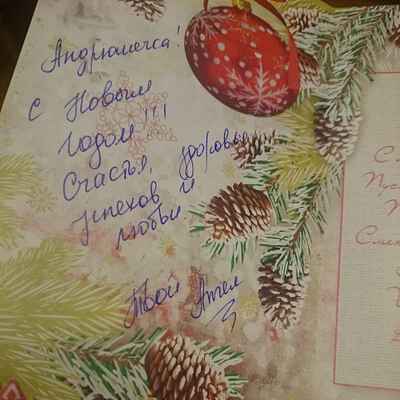 Андрюшечка!
С Новым
годом!!!
Счастья, здоровья,
успехов и
любви
Твой Ангел
С
Пу